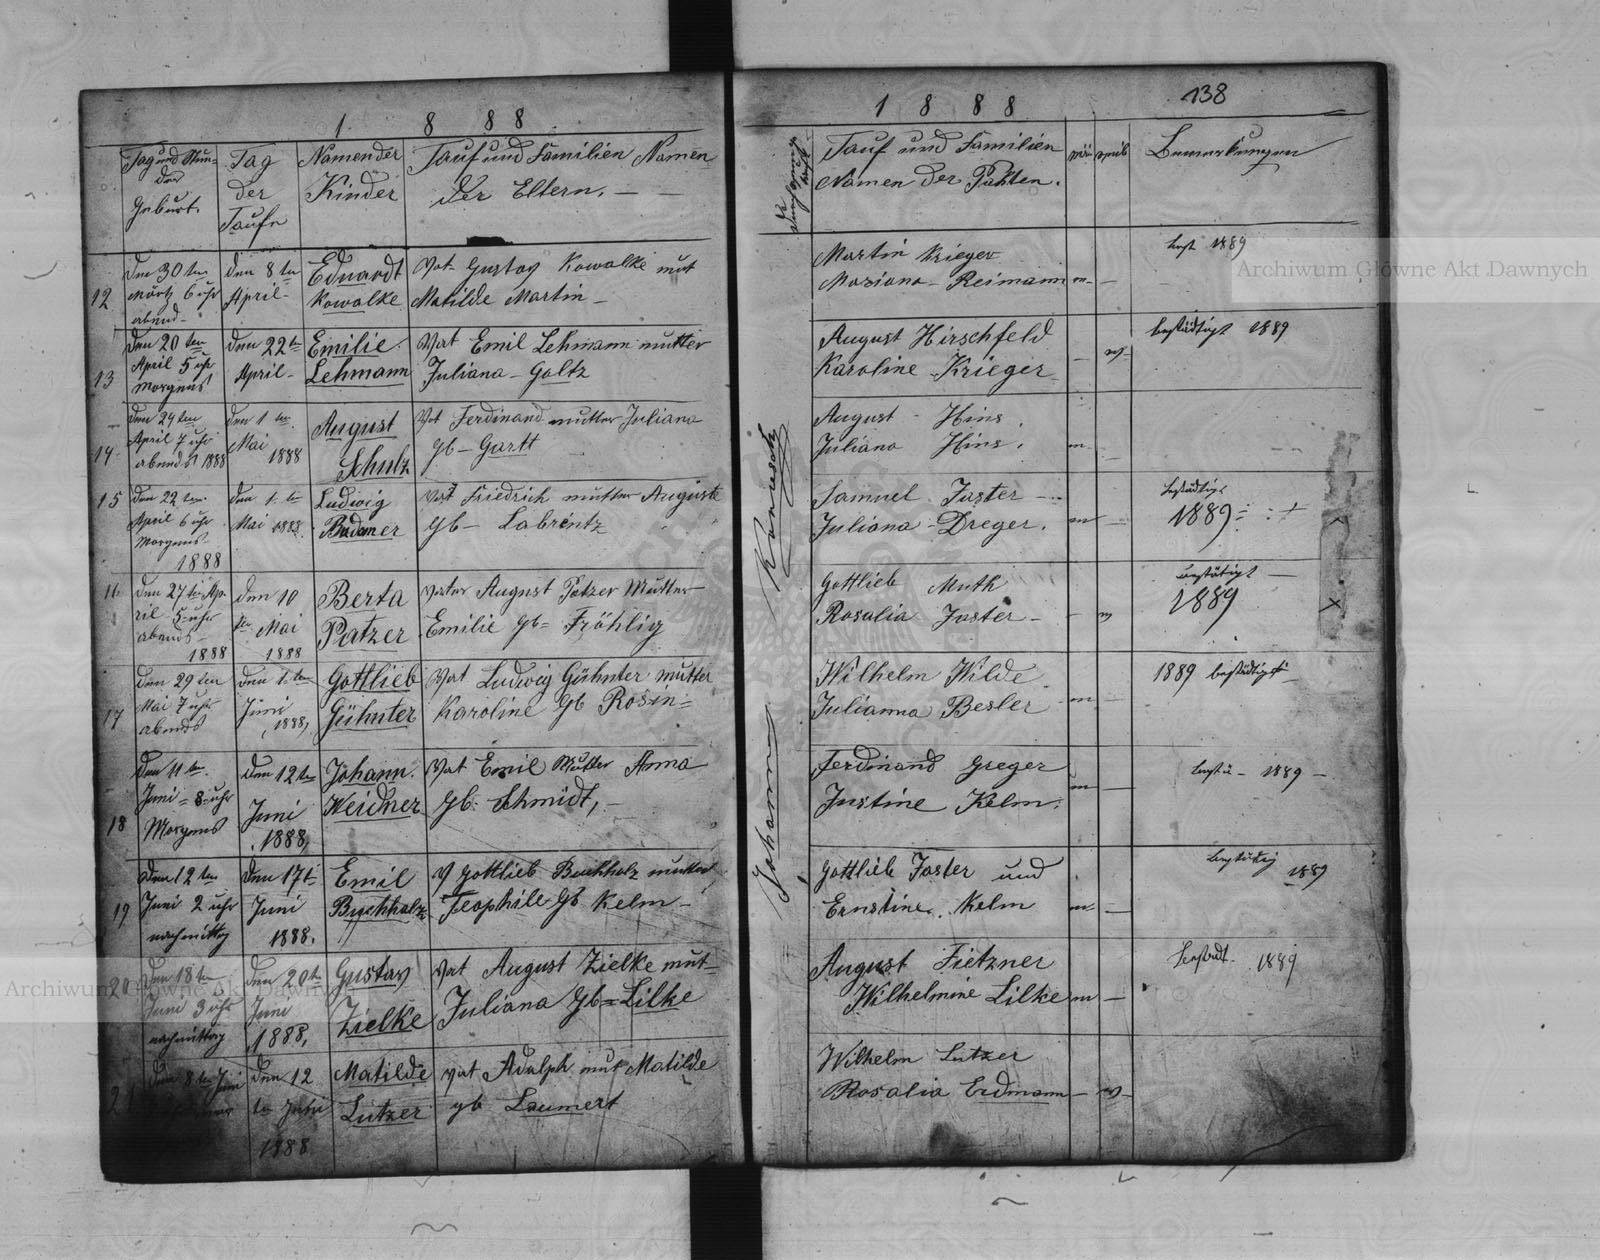 1 8 8 8
Tag und Stun-
den
Geburt.
Tag
der
Taufe
Namen der
Kinder
Tauf und Familien Namen
der Eltern. —
12
den 30 ten
Mörtz 6 uhr
abend -
den 8 ten
April -
Eduardt
Kowalke
Vat. Gustav Kowalke mut
Matilde Martin -
13
den 20 ten
April 5 uhr
Morgens
den 22 ten
April -
Emilie
Lehmann
Vat Emil Lehmann mutter
Juliana - Goltz
14
den 24 ten
April 7 uhr
abends 1888
den 1 ten
Mai 1888
August
Schulz
Vat Ferdinand mutter Juliana
gb - Gartt
15
den 22 ten
April 6 uhr
Morgens -
1888
den 1. ten
Mai 1888.
Ludwig
Vat Friedrich mutter Auguste
gb - Labrentz
16
den 27 ten Ap-
ril 5 uhr
abends -
1888
den 10
ten Mai
1888
Berta
Patzer
Vater August Patzer Mutter
Emilie gb = Fröhlig
17
den 29 ten
Mai 7 uhr
abends
den 1. ten
Juni
1888,
Gottlieb
Gühnter
Vat Ludwig Gühnter mutter
Karoline gb Rosin =
18
den 11 ten
Juni = 8 = uhr
Morgens
den 12 ten
Juni
1888,
Johann
Weidner
Vat Emil Mutter Anna
gb. Schmidt, -
19
den 12 ten
Juni 2 uhr
nachmittag
den 17 t
Juni
1888.
Emil
Buchholz
V Gottlieb Buchholz mutter
Teophile gb Kelm -
20
den 18 ten
Juni 3 uhr
nachmittag
den 20 t
Juni
1888,
Gustav
Zielke
Vat August Zielke mut-
Juliana gb = Lilke
21
den 8 ten Juni
den 12
ten Juni
1888
Matilde
Lutzer
Vat Adolph mut Matilde
gb Laumert
1 8 8 8
138
Tauf und Familien
Namen der Pahten.
män
weib
Bemerkungen
Johann
Martin Krieger
Mariana - Reimann
m -
best 1889
August Hirschfeld
Karoline - Krieger
- w -
bestädigt 1889
August - Hins
Juliana Hins.
m
Samuel Jaster -
Juliana - Dreger.
m -
bestädigt
1889
Gottlieb Muth
Rosalia Jaster -
- w
bestätigt -
1889
Wilhelm Wilde
Julianna Besler
m -
1889 bestädigt
Ferdinand Greger
Justine Kelm.
m -
bestä - 1889 -
Gottlieb Jaster und
Ernstine Kelm
m -
bestädig
1889
August Fietzner
Wilhelmine Lilke
m -
bestädt. 1889
Wilhelm Lutzer
Rosalia Erdmann
- w -
Archiwum Główne Akt Dawnych
Archiwum Główne Akt Dawnych